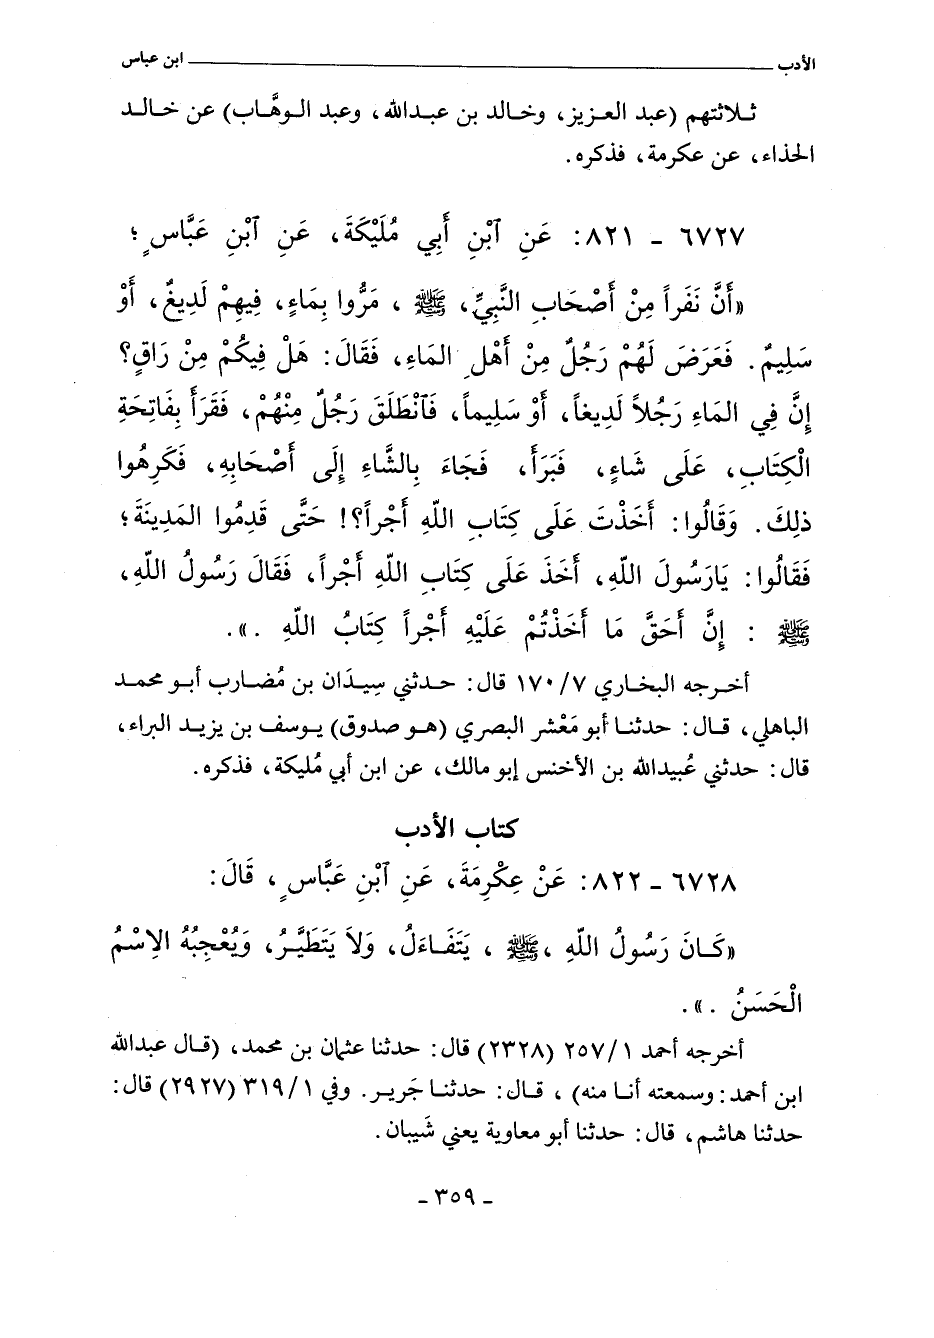 الأدب ــــــــــــــــــــــــــــــــــــــــ ابن عباس
ثـلاثتهم (عبد العـزيز، وخـالد بن عبـدالله، وعبد الـوهَّاب) عن خـالـد
الحذاء، عن عكرمة، فذكره.
٦٧٢٧ ـ ٨٢١: عَنِ ٱبْنِ أَبِي مُلَيْكَةَ، عَنِ ٱبْنِ عَبَّاسٍ؛
«أَنَّ نَفَراً مِنْ أَصْحَابِ النَّبِيِّ، ﷺ، مَرُّوا بِمَاءٍ، فِيهِمْ لَدِيغٌ، أَوْ
سَلِيمٌ. فَعَرَضَ لَهُمْ رَجُلٌ مِنْ أَهْلِ المَاءِ، فَقَالَ: هَلْ فِيكُمْ مِنْ رَاقٍ؟
إِنَّ فِي المَاءِ رَجُلاً لَدِيغاً، أَوْ سَلِيماً، فَٱنْطَلَقَ رَجُلٌ مِنْهُمْ، فَقَرَأَ بِفَاتِحَةِ
الْكِتَابِ، عَلَى شَاءٍ، فَبَرَأَ، فَجَاءَ بِالشَّاءِ إِلَى أَصْحَابِهِ، فَكَرِهُوا
ذلِكَ. وَقَالُوا: أَخَذْتَ عَلَى كِتَابِ اللّهِ أَجْراً؟! حَتَّى قَدِمُوا المَدِينَةَ؛
فَقَالُوا: يَارَسُولَ اللّهِ، أَخَذَ عَلَى كِتَابِ اللّهِ أَجْراً، فَقَالَ رَسُولُ اللّهِ،
ﷺ : إِنَّ أَحَقَّ مَا أَخَذْتُمْ عَلَيْهِ أَجْراً كِتَابُ اللّهِ .».
أخـرجه البخـاري ١٧٠/٧ قال: حـدثني سِيدَان بن مُضـارب أبـو محمـد
الباهلي، قـال: حدثنـا أبو مَعْشر البصري (هـو صدوق) يـوسف بن يزيـد البراء،
قال: حدثني عُبيدالله بن الأخنس إبو مالك، عن ابن أبي مُليكة، فذكره.
كتاب الأدب
٦٧٢٨ ـ ٨٢٢: عَنْ عِكْرِمَةَ، عَنِ ٱبْنِ عَبَّاسٍ، قَالَ:
«كَـانَ رَسُولُ اللّهِ، ﷺ، يَتَفَاءَلُ، وَلاَ يَتَطَيَّـرُ، وَيُعْجِبُهُ الاِسْمُ
الْحَسَنُ .».
أخرجه أحمد ٢٥٧/١ (٢٣٢٨) قال: حدثنا عثمان بن محمد، (قـال عبدالله
ابن أحمد: وسمعته أنـا منه)، قـال: حدثنـا جَريـر. وفي ٣١٩/١ (٢٩٢٧) قال:
حدثنا هاشم، قال: حدثنا أبو معاوية يعني شَيبان.
ـ ٣٥٩ ـ